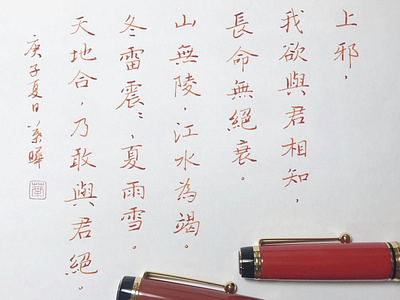 上邪，
我欲與君相知，
長命無絕衰。
山無陵，江水為竭。
冬雷震：，夏雨雪。
天地合，乃敢與君絕。
庚子夏日